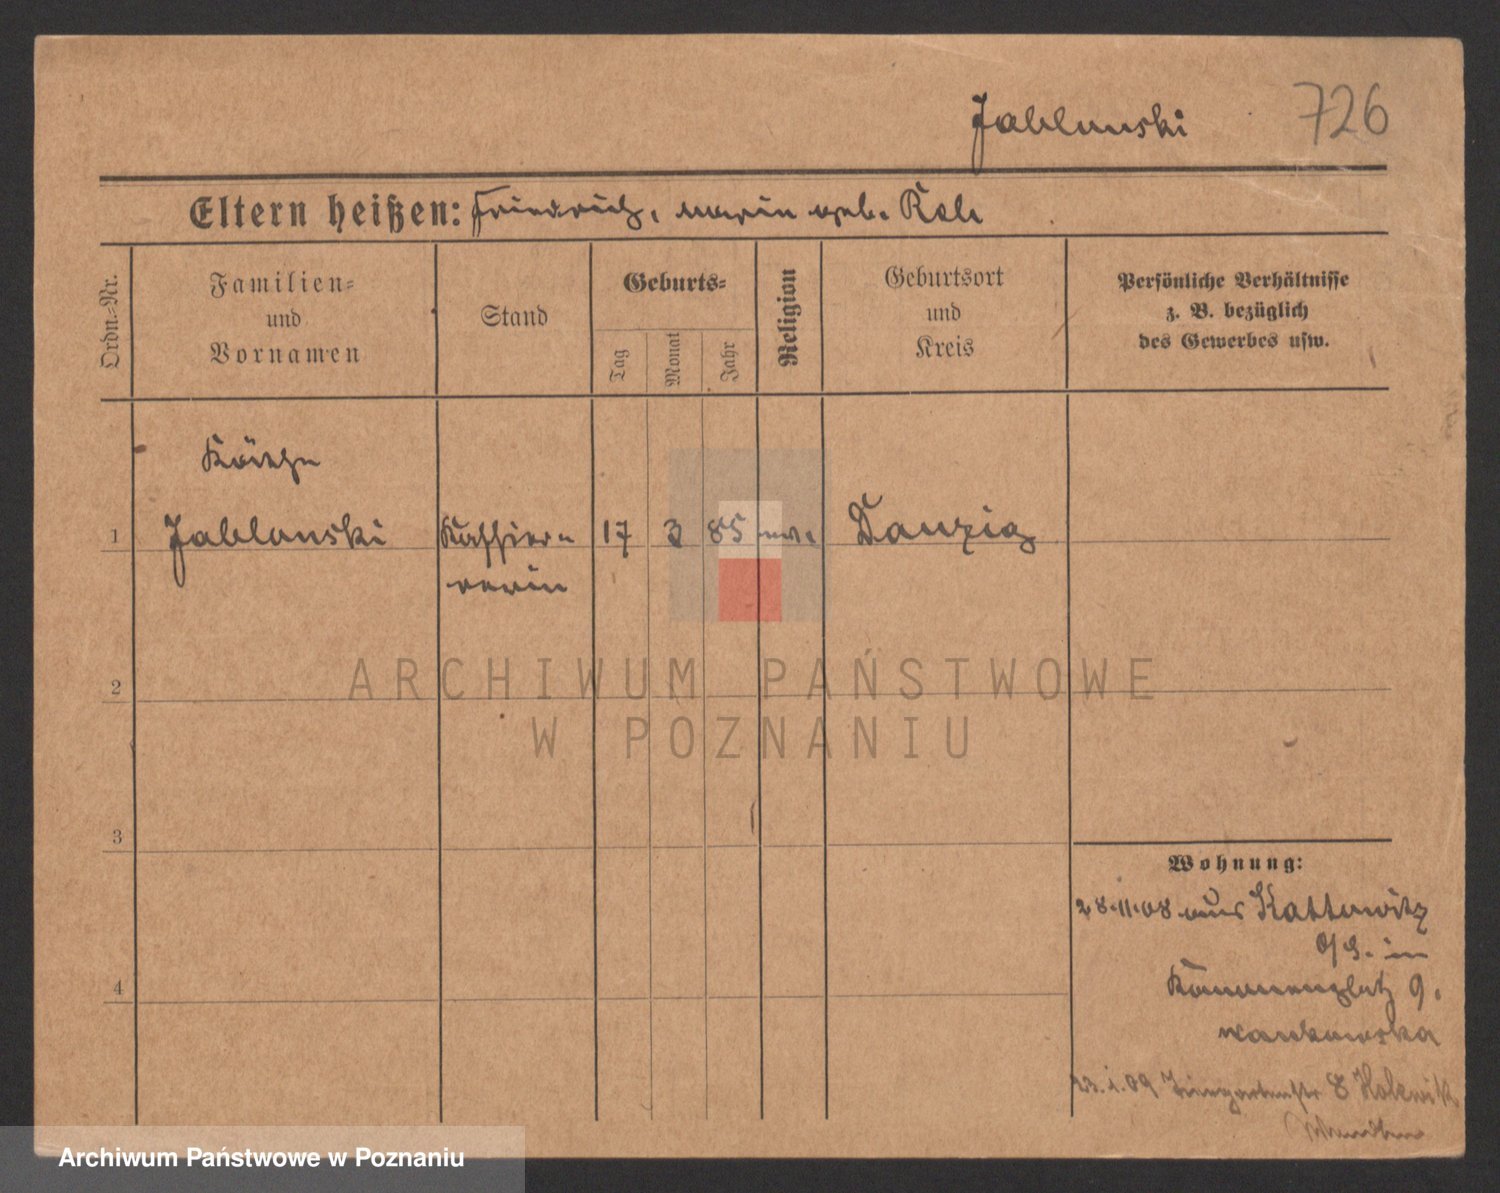 Jablonski 726
Eltern heißen: Friedrich, Marie geb. Kole
Ordn.-Nr.
Familien-
und
Vornamen
Stand
Geburts-
Tag
Monat
Jahr
Religion
Geburtsort
und
Kreis
Persönliche Verhältnisse
z. B. bezüglich
des Gewerbes usw.
Käthe
1 Jablonski Kassiere- 17 3 85 ev. Danzig
rerin
2
3
4
Wohnung:
28.11.08 aus Kattowitz
O/S. in
Kanonenplatz 9.
23.1.09 8
ARCHIWUM PAŃSTWOWE
W POZNANIU
Archiwum Państwowe w Poznaniu